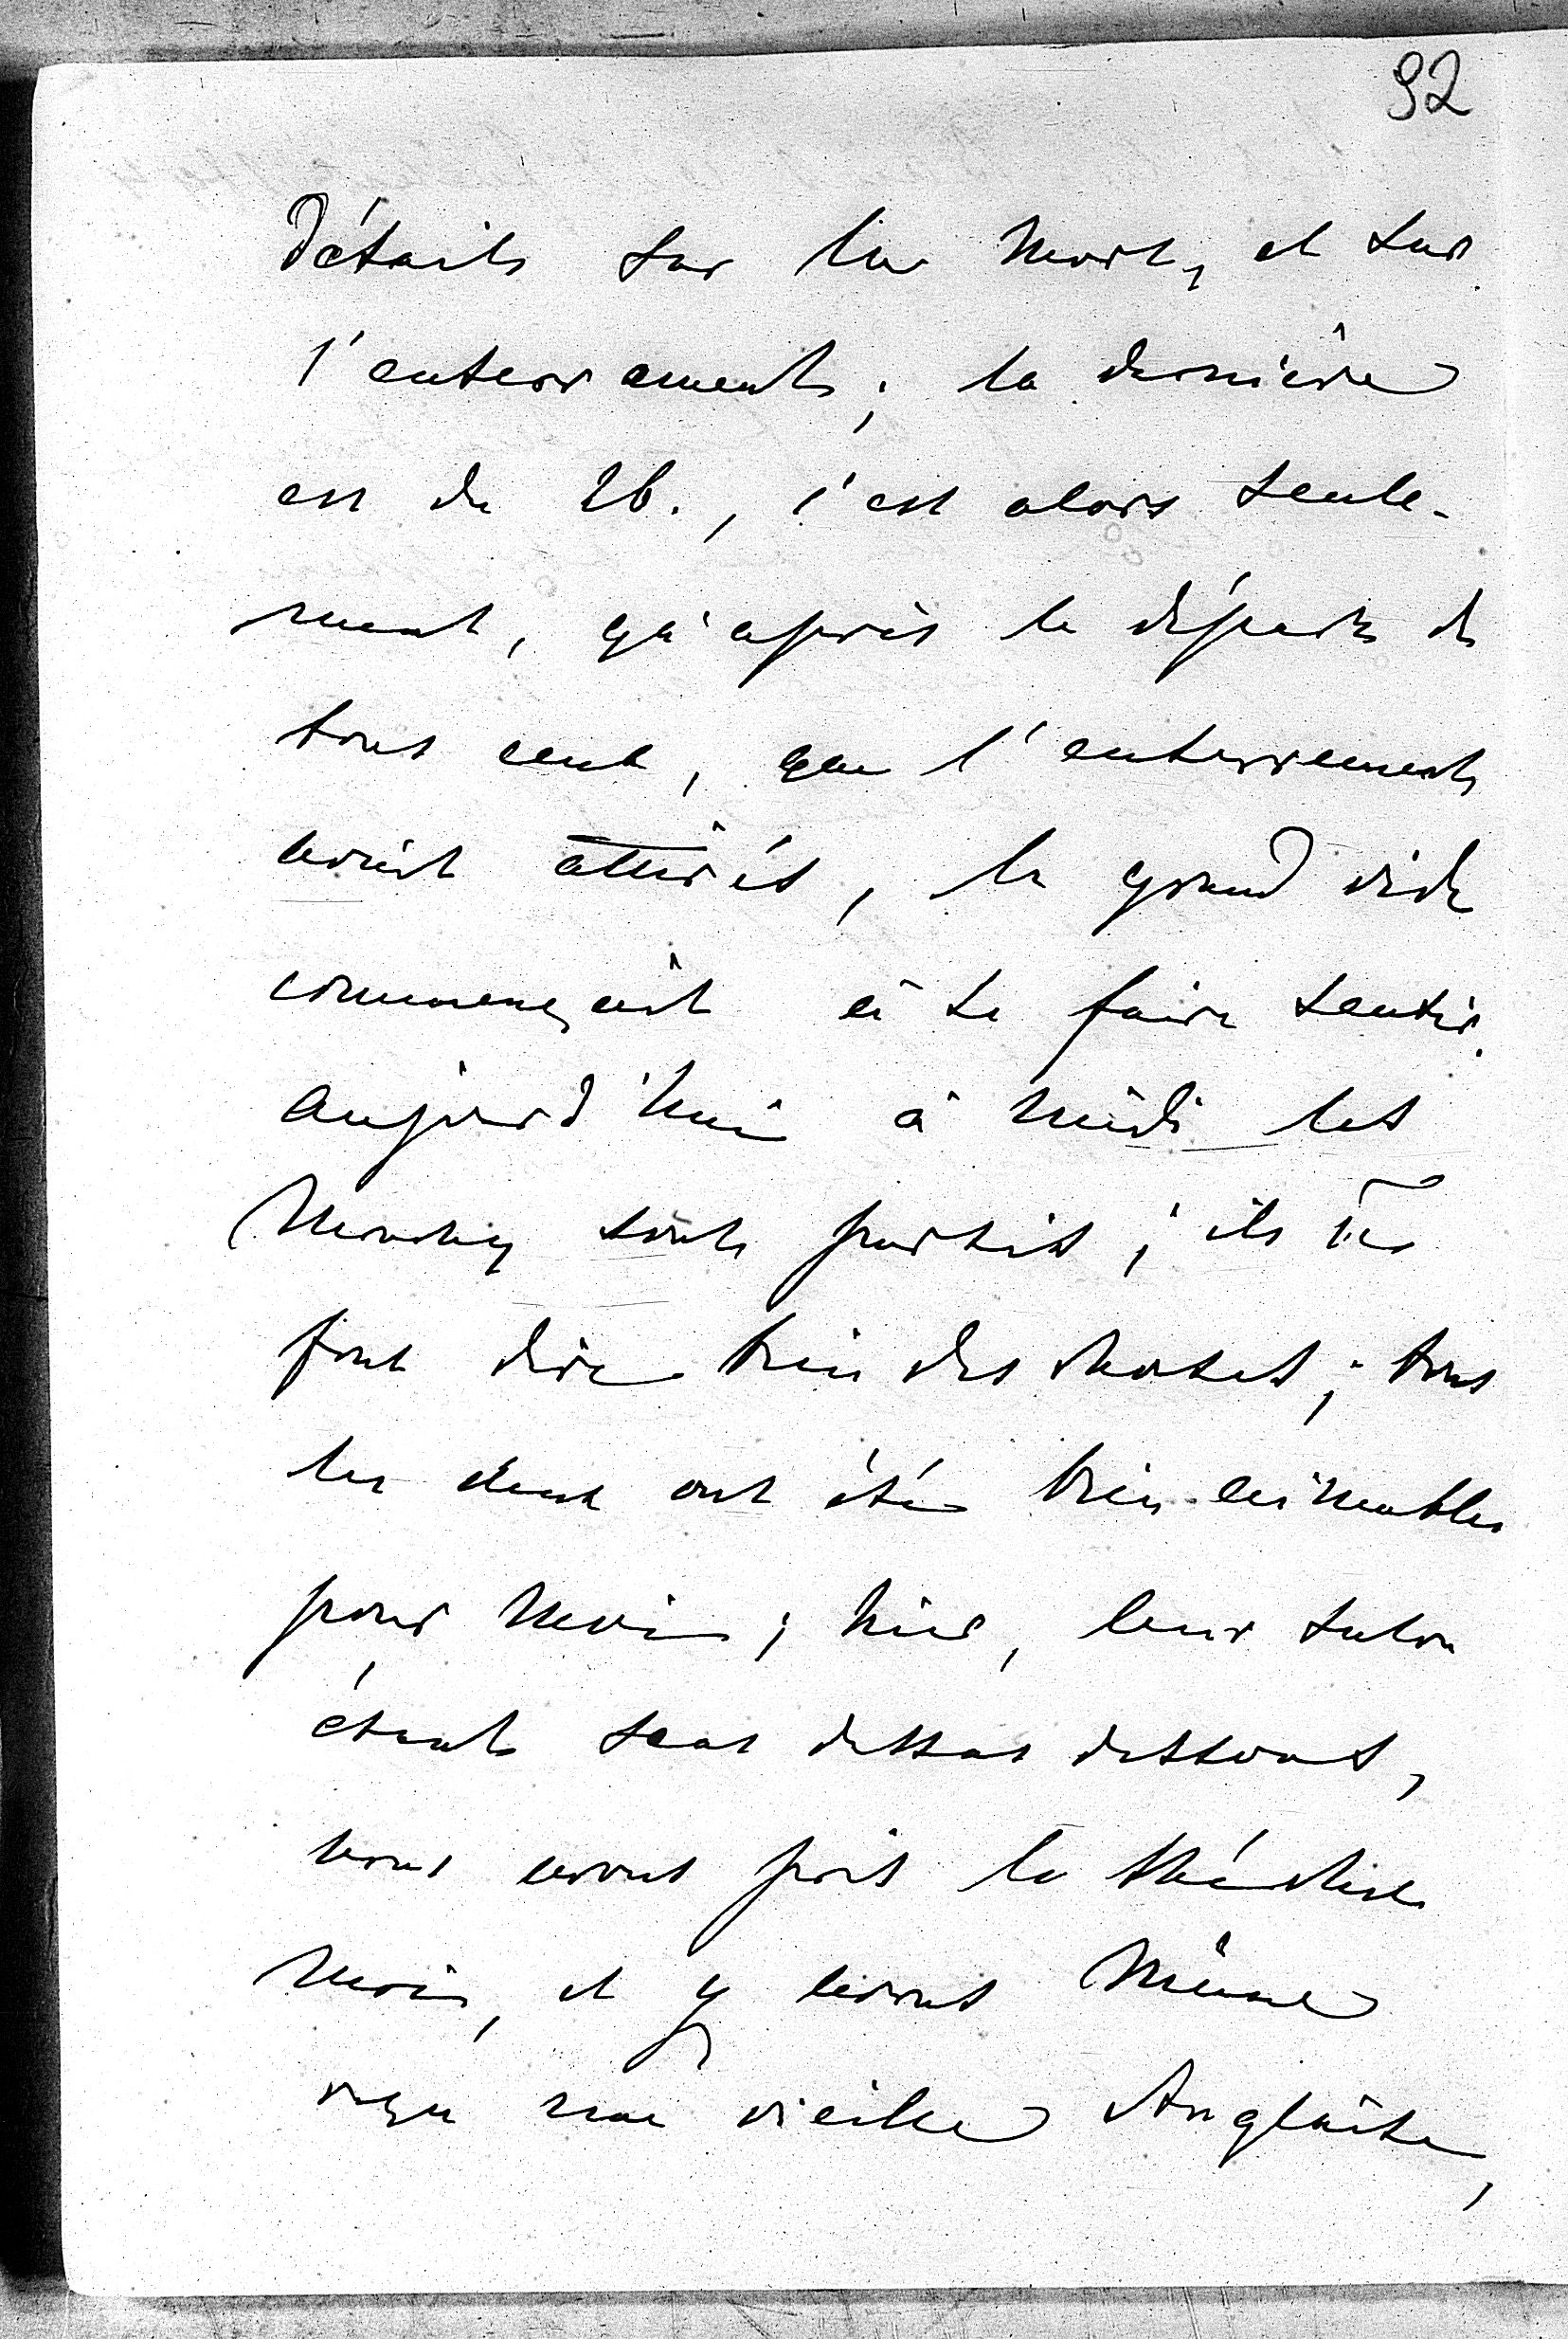 92
détails sur la mort, et sur
l'enterrement; la dernière
est du 26., c'est alors seule-
ment, qu'après le départ de
tous ceux, que l'enterrement
avait attirés, le grand vide
commençait à se faire sentir.
Aujourd'hui à midi les
sont partis; ils te
font dire bien des choses; tous
les deux ont été bien aimables
pour moi; hier, leur salon
étant sens dessus dessous,
nous avons pris le thé chez
moi, et y avons même
reçu une vieille Anglaise,